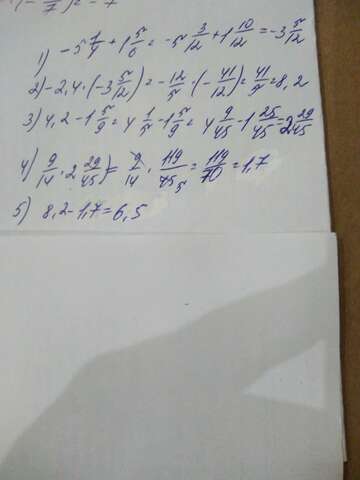 7) = -7
1) -5 1/4 + 1 5/6 = -5 3/12 + 1 10/12 = -3 5/12
2) -2,4 · (-3 5/12) = -12/5 · (-41/12) = 41/5 = 8,2
3) 4,2 - 1 5/9 = 4 1/5 - 1 5/9 = 4 9/45 - 1 25/45 = 2 29/45
4) 9/14 · 2 29/45) = 9/14 · 119/45 5 = 119/70 = 1,7
5) 8,2 - 1,7 = 6,5